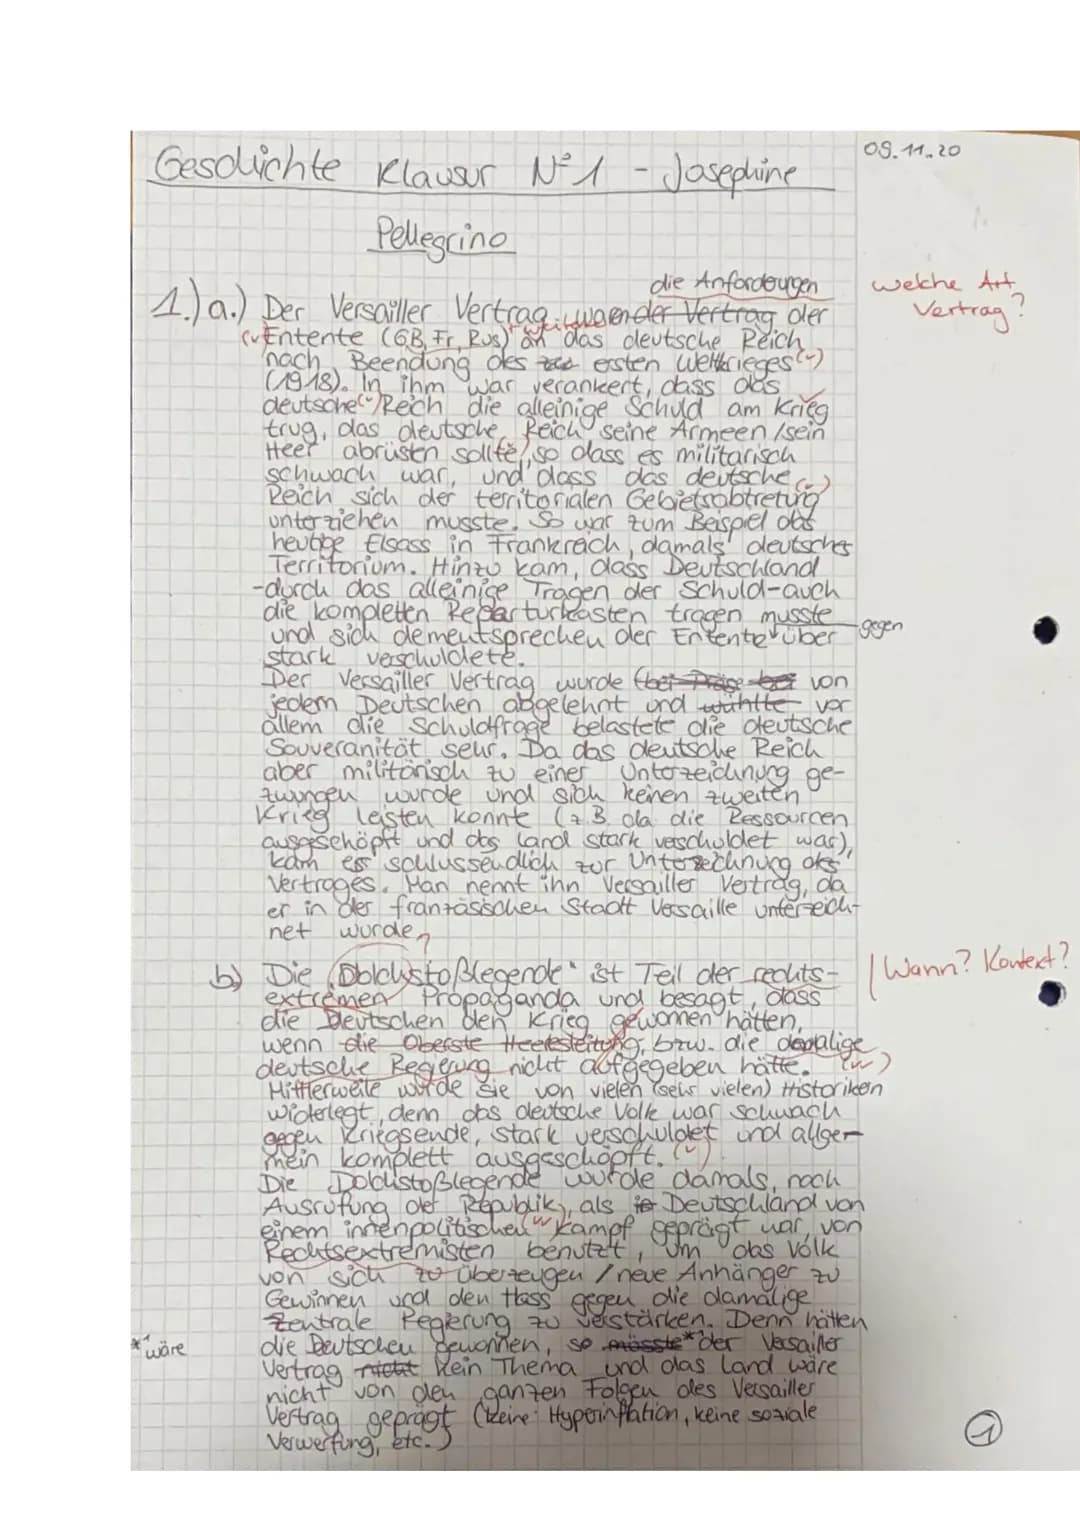 Geschichte Klausur N°1 - Josephine
09.11.20
Pellegrino
die Anforderungen
welche Art
Vertrag?
1.) a.) Der Versailler Vertrag waren der Vertrag der
Entente (GB, Fr, Rus) an das deutsche Reich
nach Beendung des ersten Weltkrieges
(1918). In ihm war verankert, dass das
deutsche Reich die alleinige Schuld am Krieg
trug, das deutsche Reich seine Armeen/sein
Heer abrüsten sollte, so dass es militärisch
schwach war, und dass das deutsche
Reich sich der territorialen Gebietsabtretung
unterziehen musste. So war zum Beispiel das
heutige Elsass in Frankreich, damals deutsches
Territorium. Hinzu kam, dass Deutschland
-durch das alleinige Tragen der Schuld-auch
die kompletten Reparturkosten tragen musste
und sich dementsprechen der Entente über
gegen
stark verschuldete.
Der Versailler Vertrag wurde von
jedem Deutschen abgelehnt und wühlte vor
allem die Schuldfrage belastete die deutsche
Souveranität sehr. Da das deutsche Reich
aber militärisch zu einer Unterzeichnung ge-
zwungen wurde und sich keinen zweiten
Krieg leisten konnte (z.B. da die Ressourcen
ausgeschöpft und das Land stark verschuldet war),
kam es schlussendlich zur Unterzeichnung des
Vertrages. Man nennt ihn Versailler Vertrag, da
er in der französischen Stadt Versaille unterzeich-
net wurde.
b) Die „Dolchstoßlegende" ist Teil der rechts-
Wann? Kontext?
extremen Propaganda und besagt, dass
die Deutschen den Krieg gewonnen hätten,
wenn die Oberste Heeresleitung, bzw. die damalige
deutsche Regierung nicht aufgegeben hätte.
Mittlerweile wurde sie von vielen (sehr vielen) Historikern
widerlegt, denn das deutsche Volk war schwach
gegen Kriegsende, stark verschuldet und allge-
mein komplett ausgeschöpft.
Die Dolchstoßlegende wurde damals, nach
Ausrufung der Republik, als Deutschland von
einem innenpolitischen Kampf geprägt war, von
Rechtsextremisten benutzt, um das Volk
von sich zu überzeugen / neue Anhänger zu
Gewinnen und den Hass gegen die damalige
Zentrale Regierung zu verstärken. Denn hätten
die Deutschen gewonnen, so müsste* der Versailler
*¹ wäre
Vertrag nicht kein Thema und das Land wäre
nicht von den ganzen Folgen des Versailler
Vertrag geprägt (keine Hyperinflation, keine soziale
Verwerfung, etc.)
1